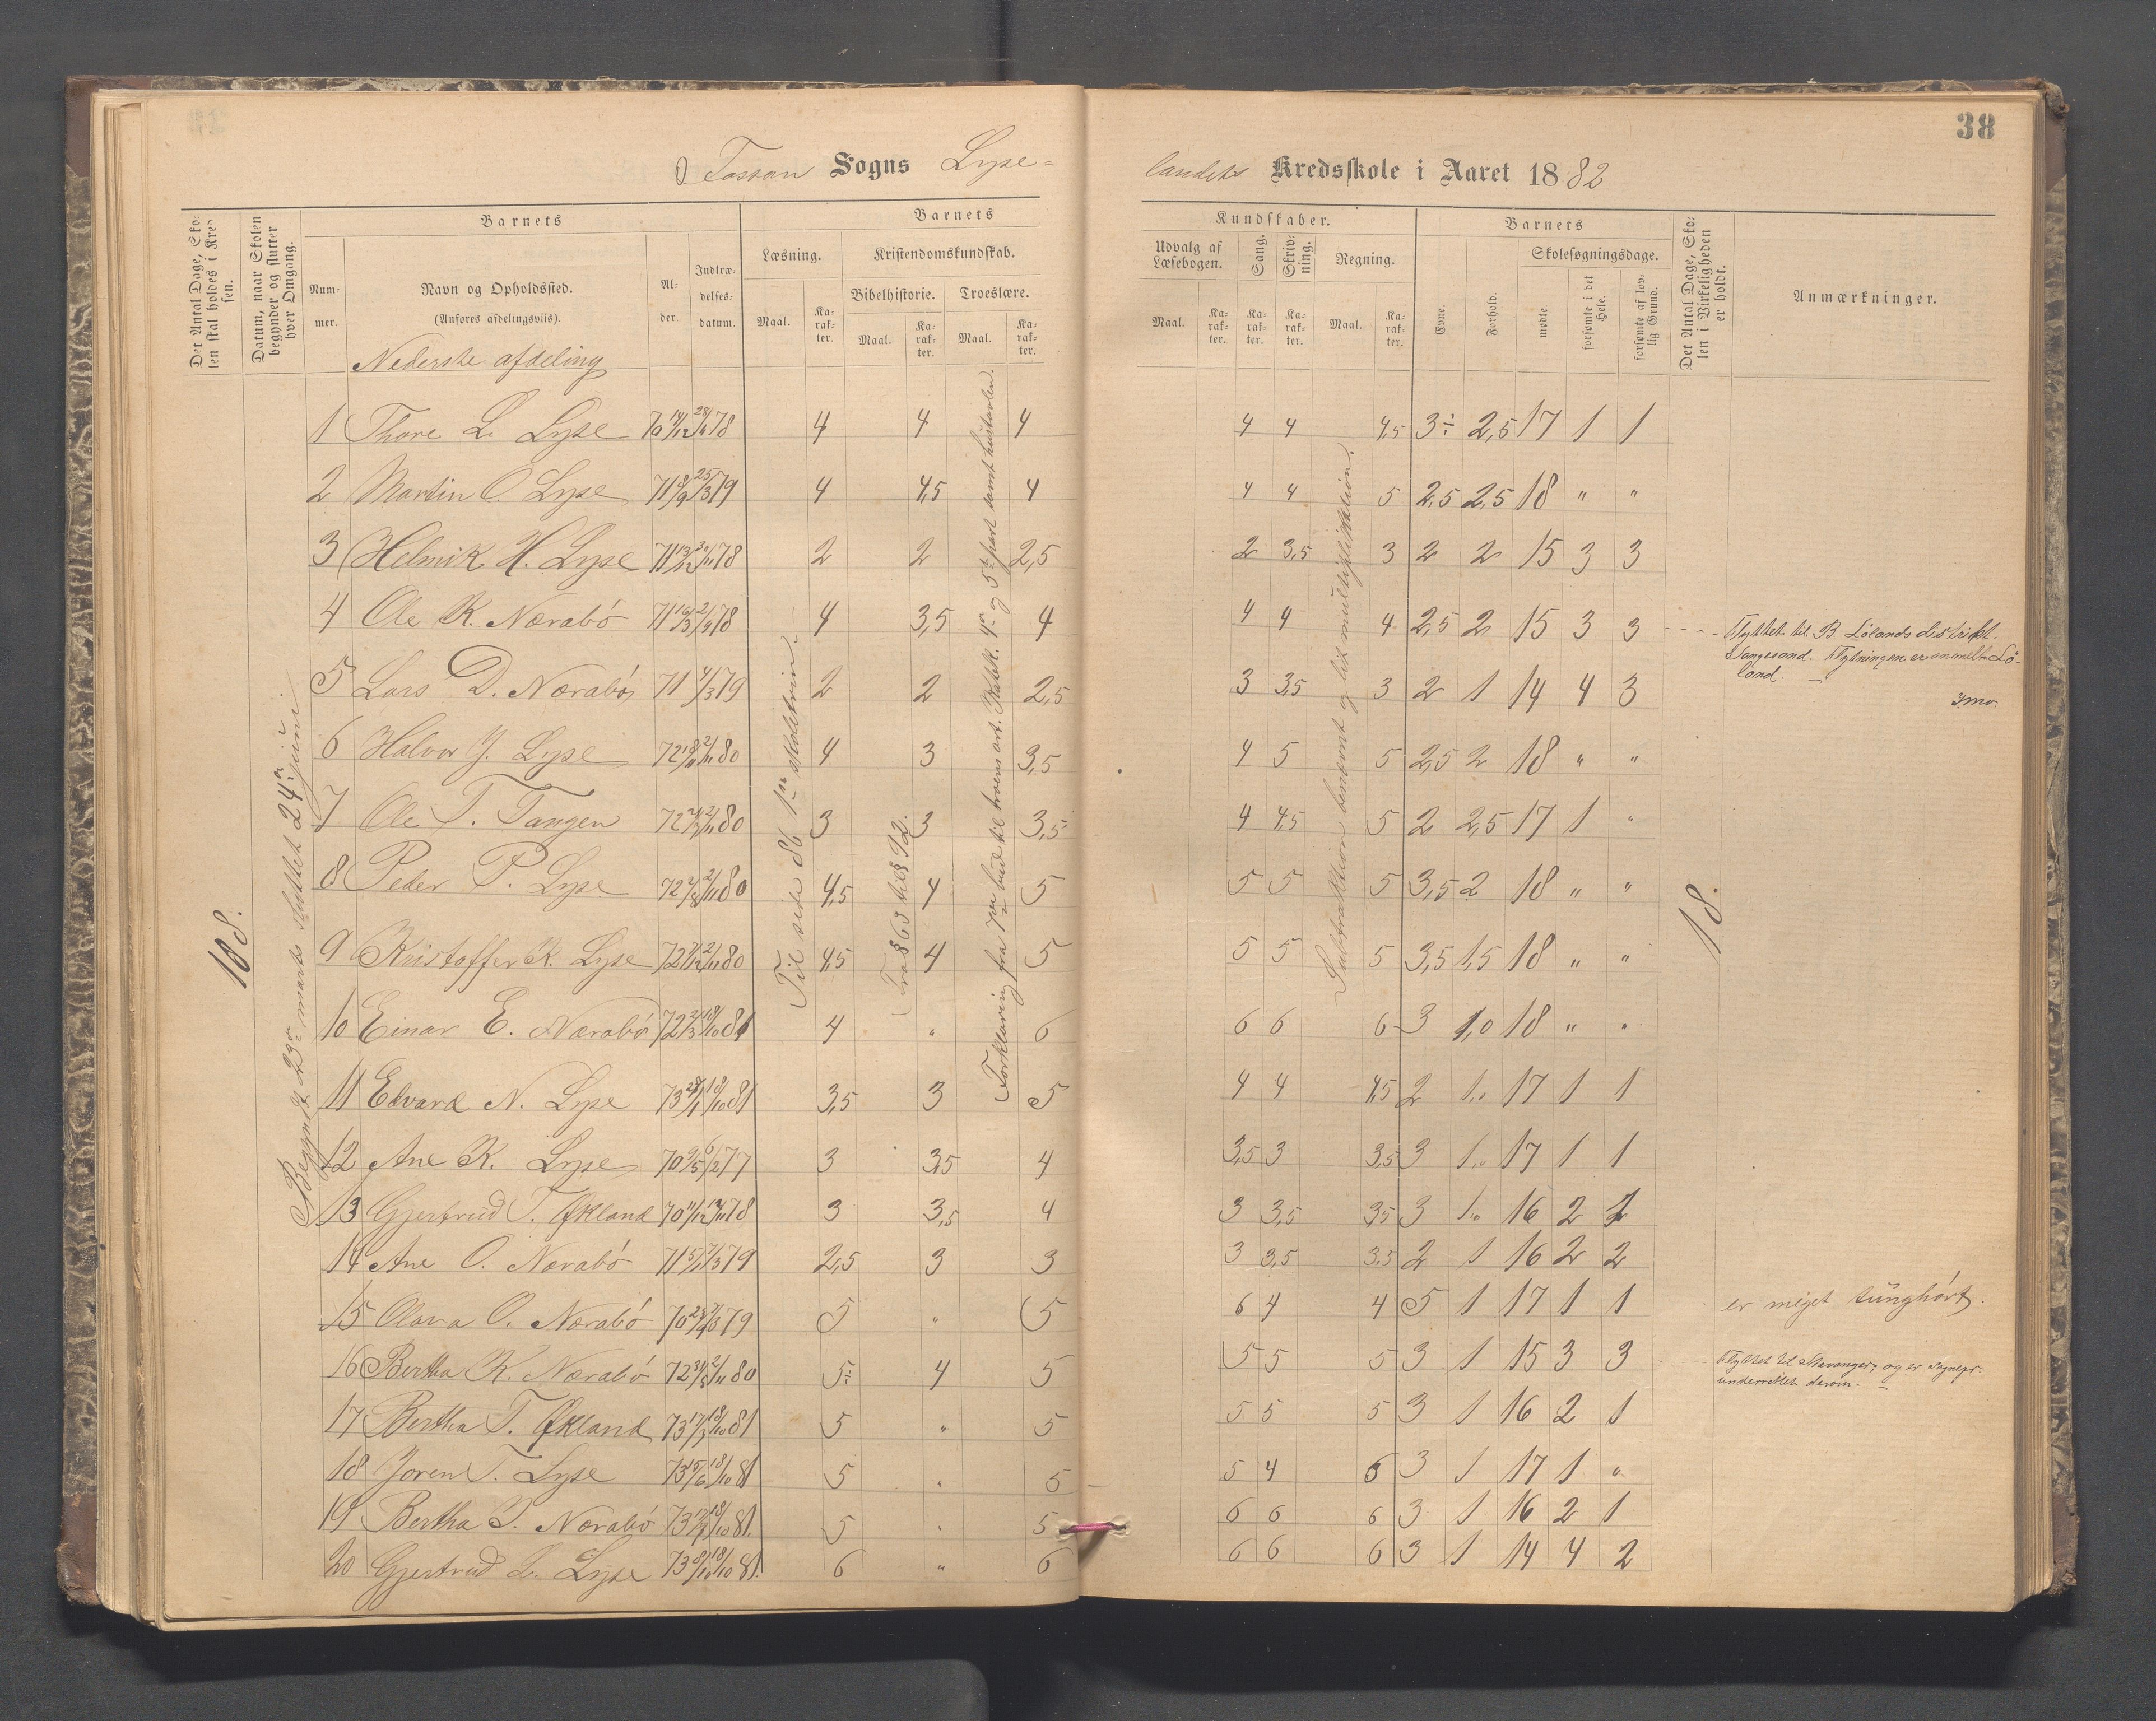 38
Fossan Sogns Lyse-
landets Kredsskole i Aaret 1882
Det Antal Dage, Skolen skal holdes i Kredsen.
Datum, naar Skolen begynder og slutter hver Omgang.
Barnets
Nummer.
Navn og Opholdssted.
(Anføres afdelingsviis).
Alder.
Indtrædelsesdatum.
Barnets
Læsning.
Maal.
Karakter.
Kristendomskundskab.
Bibelhistorie.
Maal.
Karakter.
Troeslære.
Maal.
Karakter.
Kundskaber.
Udvalg af Læsebogen.
Maal.
Karakter.
Sang.
Karakter.
Skrivning.
Karakter.
Regning.
Maal.
Karakter.
Barnets
Evne.
Forhold.
Skolesøgningsdage.
mødte.
forsømte i det Hele.
forsømte af lovlig Grund.
Det Antal Dage, Skolen i Virkeligheden er holdt.
Anmærkninger.
Nederste afdeling
1 Thore L. Lyse 70 14/12 28/4 78 4 4 4 4 4 4,5 3÷ 2,5 17 1 1
2 Martin O. Lyse 71 8/9 25/3 79 4 4,5 4 4 4 5 2,5 2,5 18 " "
3 Helmik H. Lyse 71 13/12 78 2 2 2,5 2 3,5 3 2 2 15 3 3
4 Ole K. Nærabø 71 78 4 3,5 4 4 4 4 2,5 2 15 3 3
Flyttet til B. Lølands distrikt.
Flytningen er anmeldt Løland.
5 Lars D. Nærabø 71 4/3 79 2 2 2,5 3 3,5 3 2 1 14 4 3
6 Halvor J. Lyse 72 2/11 80 4 3 3,5 4 5 5 2,5 2 18 " "
7 Ole T. Tangen 72 2/11 80 3 3 3,5 4 4,5 5 2 2,5 17 1 "
8 Peder P. Lyse 72 2/11 80 4,5 4 5 5 5 5 3,5 2 18 " "
9 Kristoffer K. Lyse 72 2/11 80 4,5 4 5 5 5 5 3,5 1,5 18 " "
10 Einar E. Nærabø 72 2/3 18/10 81 4 " 6 6 6 6 3 1,0 18 " "
11 Edvard N. Lyse 73 18/10 81 3,5 3 5 4 4 4,5 2 1,0 17 1 1
12 Ane K. Lyse 70 9/5 6/2 77 3 3,5 4 3,5 3 3,5 3 1,0 17 1 1
13 Gjertrud T. Økland 70 78 3 3,5 4 3 3,5 3,5 3 1,0 16 2 2
14 Ane O. Nærabø 71 79 2,5 3 3 3 3,5 3,5 2 1 16 2 2
15 Olava O. Nærabø 70 79 5 " 5 6 4 4 5 1 17 1 1 er meget tunghørt.
16 Bertha K. Nærabø 72 2/11 80 5÷ 4 5 5 5 5 3 1 15 3 3
Flyttet til Stavanger, og er sognepr. underrettet derom.
17 Bertha T. Økland 73 18/10 81 5 " 5 5 5 5 3 1 16 2 1
18 Joren T. Lyse 73 15/6 18/10 81 5 " 5 5 4 6 3 1 17 1 "
19 Bertha T. Nærabø 73 18/10 81. 5 " 5 6 6 6 3 1 16 2 1
20 Gjertrud L. Lyse 73 8/10 18/10 81. 6 " 6 6 6 6 3 1 14 4 2
18.
Begyndt 23de marts sluttet 24de juni
Til side 86 1ste skoletrin.
Fra § 63 til § 92.
Forklaring fra 7de bud til troens art. Katek. 4de og 5te part samt hustavlen.
Subtraktion benævnt og lidt multiplikation.
18.